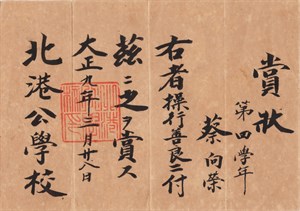 賞状
第四学年
蔡向榮
右者操行善良ニ付
茲ニ之ヲ賞ス
大正九年三月廿八日
北港公學校